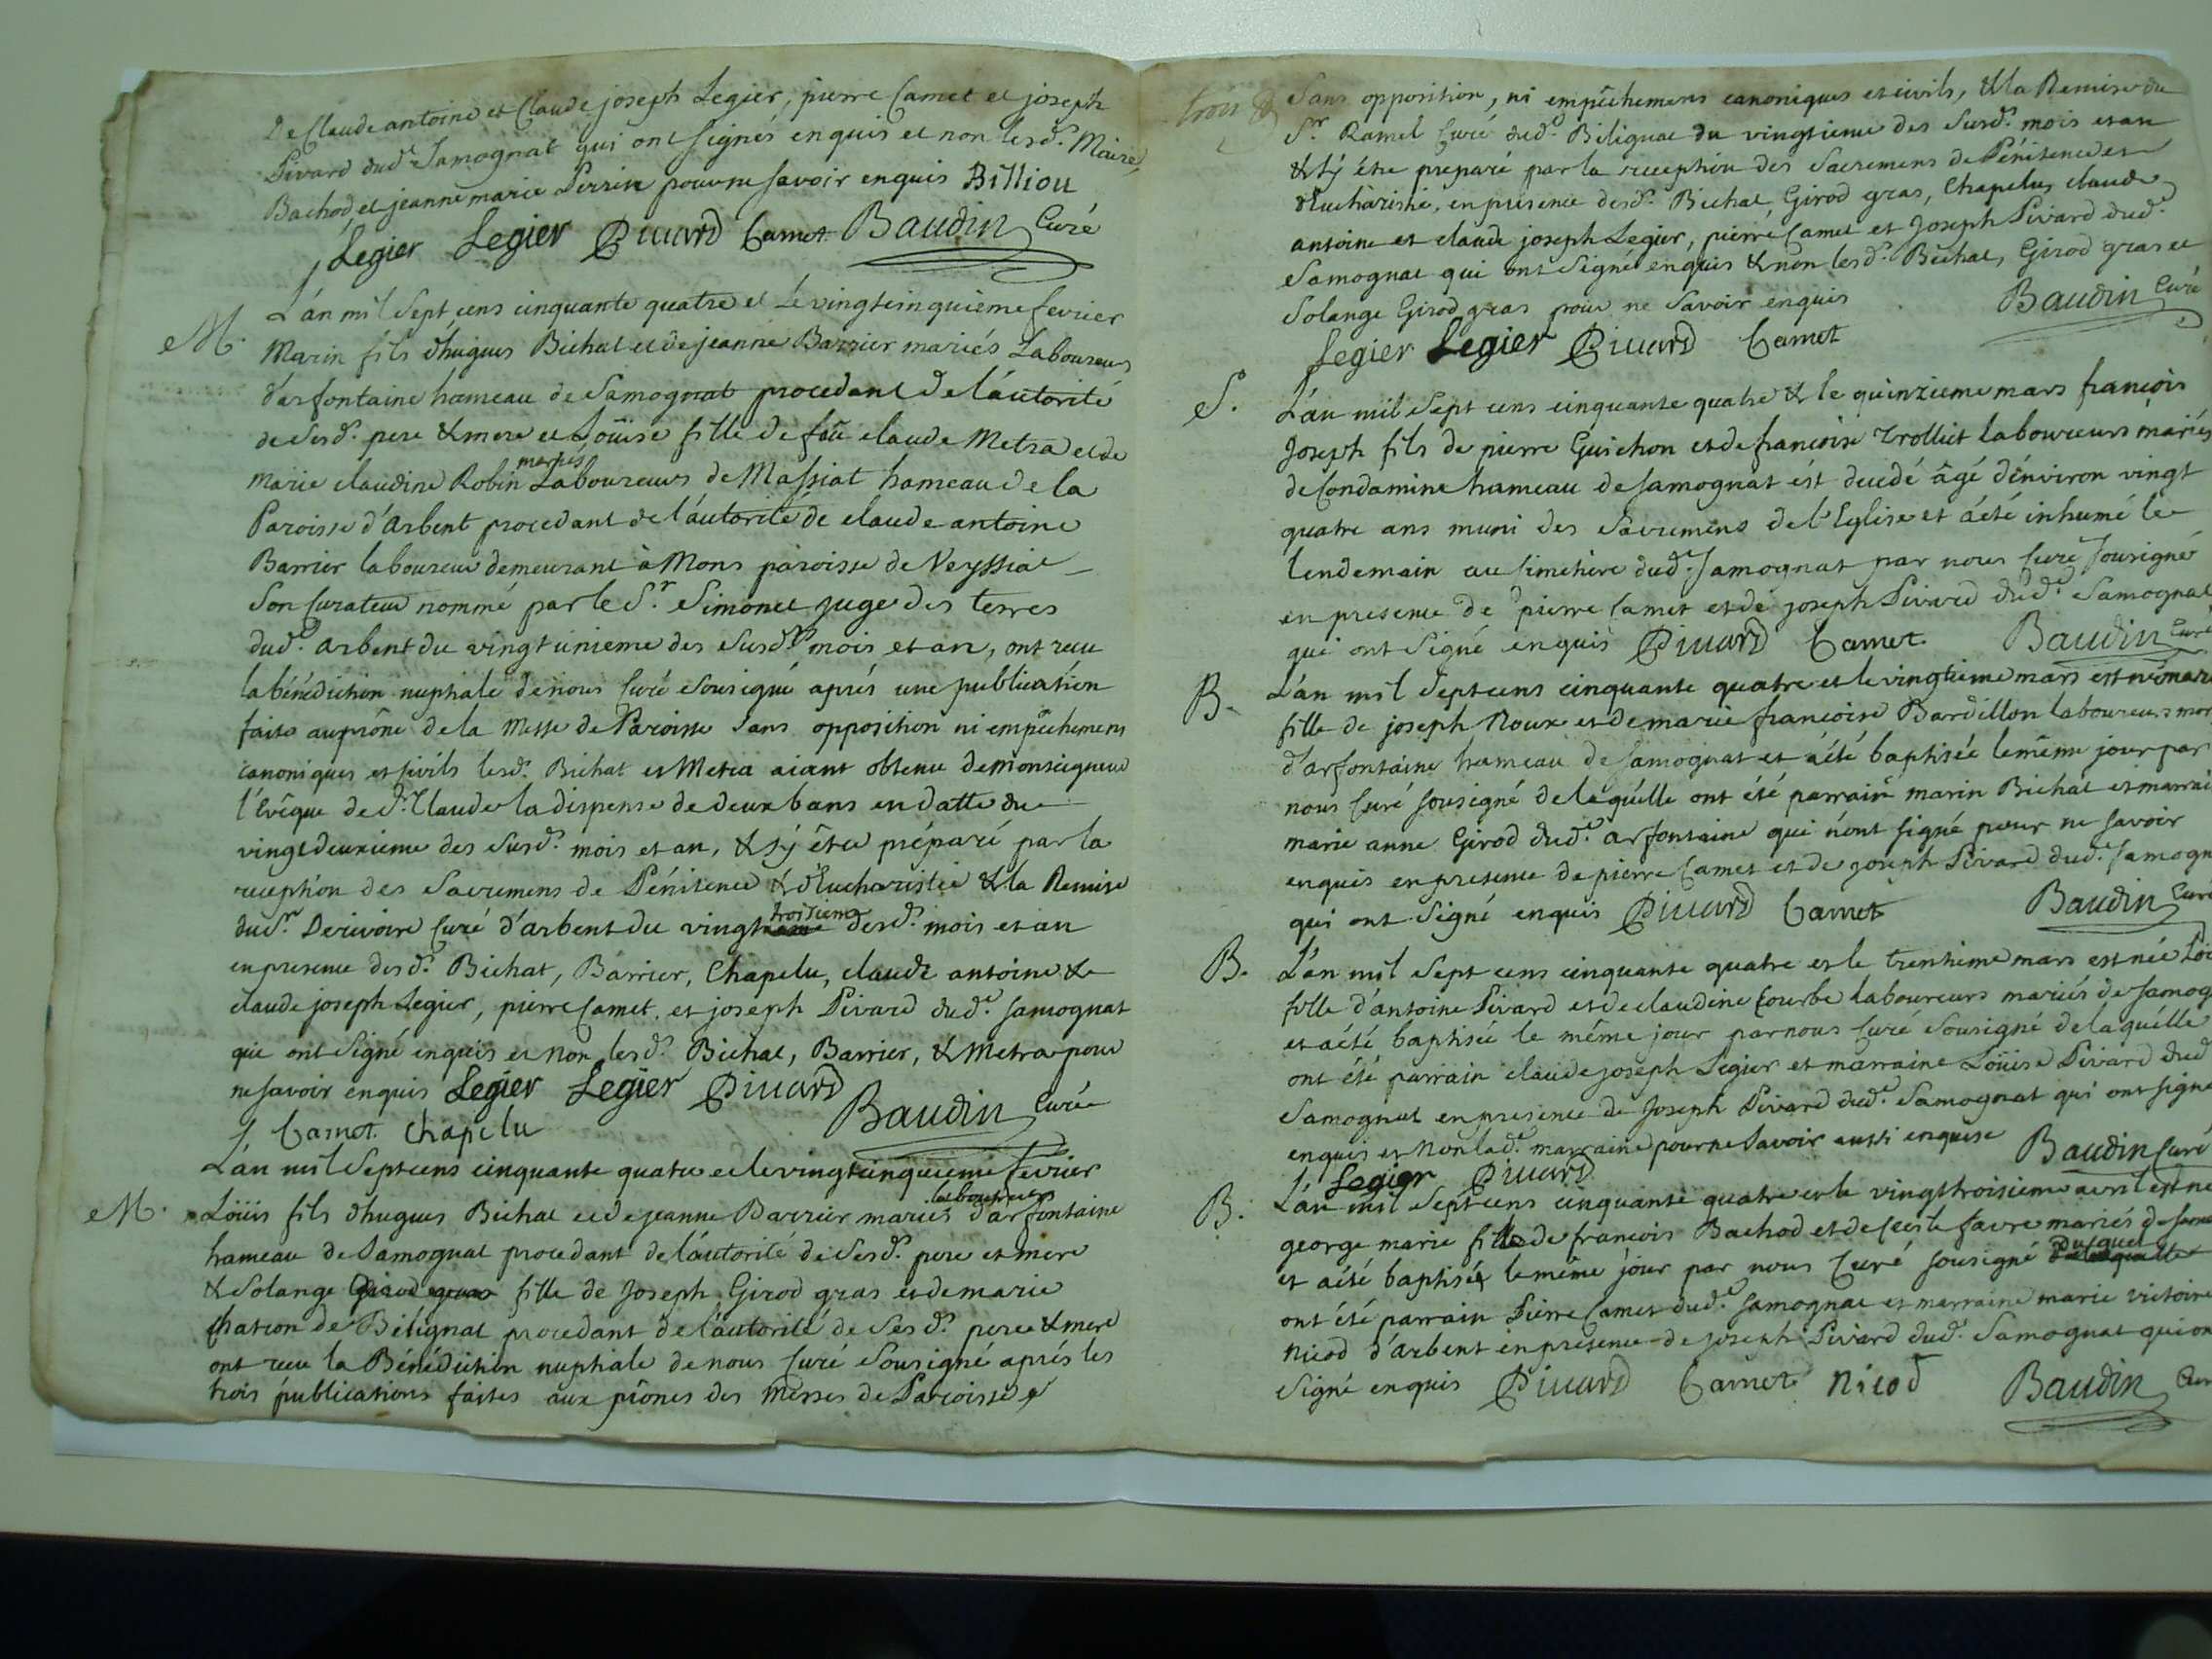 De Claude antoine et Claude joseph Legier, pierre Camet et joseph
Pivard dud.e Samognat qui ont signés enquis et non lesd. Maire,
Bachod, et jeanne marie Perrin pour ne savoir enquis Billiou
Legier Legier Pivard Camet Baudin Curé
M. L'án mil Sept cens cinquante quatre et le vingtcinquieme fevrier
Marin fils d'hugues Bichat et de jeanne Barrier mariés Laboureurs
d'arfontaine hameau de Samognat procedant de l'áutorité
de Sesd. pere & mere et Loüise fille de feu claude Metra et de
marie claudine Robin mariés Laboureurs de Massiat hameau de la
Paroisse d'Arbent procedant de l'áutorité de claude antoine
Barrier laboureur demeurant à Mons paroisse de Veyssiat
Son Curateur nommé par le Sr. Simonet juge des terres
dud. arbent du vingt unieme des Susd. mois et an, ont recu
la bénédiction nuptiale de nous Curé Sousigné aprés une publication
faite au prône de la Messe de Paroisse Sans opposition ni empêchemens
canoniques et Civils lesd. Bichat et Metra aiant obtenu de monseigneur
l'Evêque de St. Claude la dispense de deux bans en datte du
vingtdeuxieme des Susd. mois et an, & s'y être préparé par la
reception des Sacremens de Pénitence & d'Eucharistie & la Remise
dud. Sr. Derivoire Curé d'arbent du vingt troisieme desd. mois et an
en presence desd. Bichat, Barrier, Chapelu, claude antoine &
claude joseph Legier, pierre Camet, et joseph Pivard dud.e Samognat
qui ont Signé enquis et non lesd. Bichat, Barrier, & Metra pour
ne Savoir enquis Legier Legier Pivard
Camet Chapelu Baudin Curé
L'án mil Septcens cinquante quatre et le vingtcinquieme fevrier
M. Loüis fils d'hugues Bichat et de jeanne Barrier mariés laboureurs d'arfontaine
hameau de Samognat procedant de l'áutorité de Sesd. pere et mere
& Solange Girod gras fille de Joseph Girod gras et de marie
de Bélignat procedant de l'áutorité de Sesd. pere & mere
ont recu la Bénédiction nuptiale de nous Curé Sousigné aprés les
trois publications faites aux prônes des Messes de Paroisse
Sans opposition, ni empêchemens canoniques et civils, & la Remise du
Sr. Ramel Curé dud.e Bélignat du vingtieme des Susd. mois et an
& s'y être preparé par la reception des Sacremens de Pénitence et
d'Eucharistie, en presence desd. Bichat, Girod gras, Chapelu, claude
antoine et claude joseph Legier, pierre Camet et Joseph Pivard dud.e
Samognat qui ont Signé enquis & non lesd. Bichat, Girod gras et
Solange Girod gras pour ne Savoir enquis Baudin Curé
Legier Legier Pivard Camet
S. L'án mil Sept cens cinquante quatre & le quinzieme mars françois
Joseph fils de pierre Guichon et de françoise Trolliet laboureurs mariés
de Condamine hameau de Samognat ést decédé âgé d'environ vingt
quatre ans muni des Sacremens de l'Eglise et áété inhumé le
lendemain au Simetiere dud.e Samognat par nous Curé Sousigné
en presence de pierre Camet et de joseph Pivard dud.e Samognat
qui ont Signé enquis Pivard Camet Baudin Curé
B. L'án mil Septcens cinquante quatre et le vingtieme mars est née
fille de joseph Roux et de marie françoise Bardillon laboureurs
d'arfontaine hameau de Samognat et áété baptisée le même jour par
nous Curé Sousigné de laquélle ont été parrain marin Bichat et
marie anne Girod dud.e arfontaine qui n'ont signé pour ne savoir
enquis en presence de pierre Camet et de joseph Pivard dud.e Samogn
qui ont Signé enquis Pivard Camet Baudin Curé
B. L'án mil Sept cens cinquante quatre et le trentieme mars est née
fille d'antoine Pivard et de claudine Courbe laboureurs mariés de Samog
et áété baptisée le même jour par nous Curé Sousigné de laquélle
ont été parrain claude joseph Legier et marraine Loüise Pivard dud
Samognat en presence de Joseph Pivard dud.e Samognat qui ont signé
enquis et Non lad.e marraine pour ne Savoir aussi enquise Baudin Curé
Legier Pivard
B. L'án mil Septcens cinquante quatre et le vingttroisieme avril est né
george marie fils de françois Bachod et de Cecile favre mariés de
et áété baptisé le même jour par nous Curé Sousigné Duquel
ont été parrain Pierre Camet dud.e Samognat et marraine marie victoire
Nicod d'Arbent en presence de joseph Pivard dud.e Samognat qui on
Signé enquis Pivard Camet Nicod Baudin